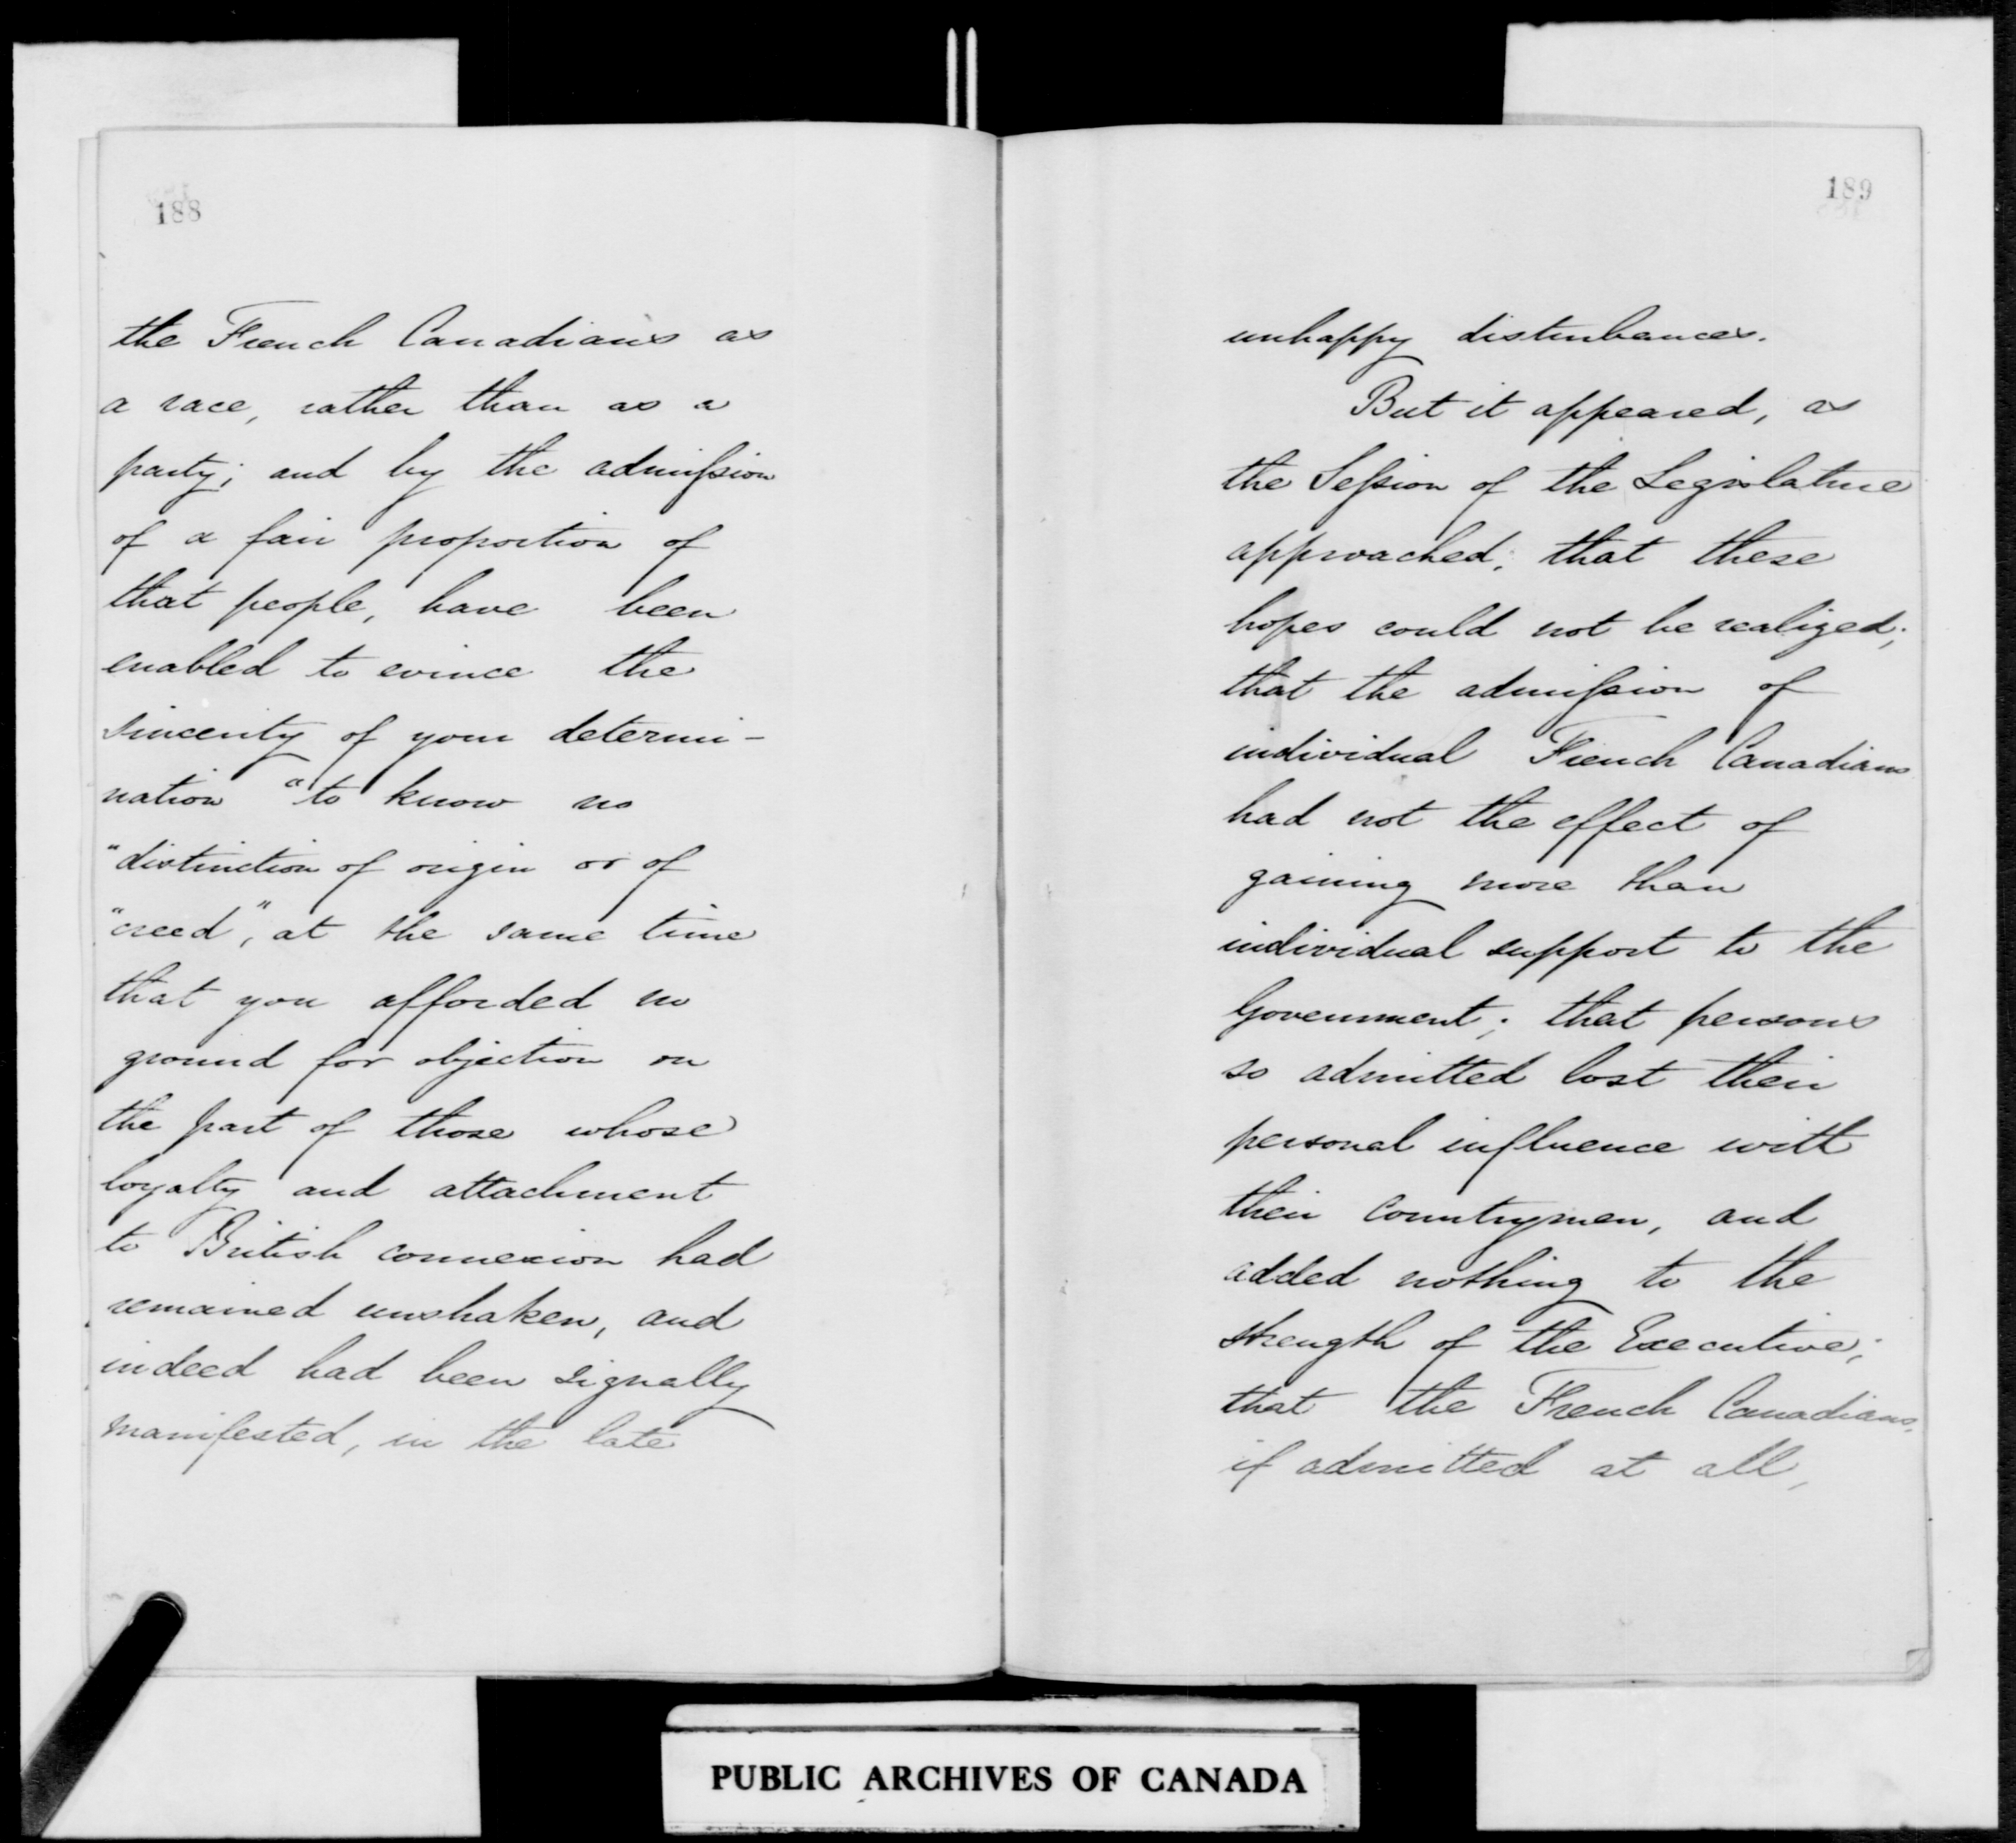 188
the French Canadians as
a race, rather than as a
party; and by the admiſsion
of a fair proportion of
that people, have been
enabled to evince the
sincerity of your determi-
nation "to know no
"distinction of origin or of
"creed", at the same time
that you afforded no
ground for objection on
the part of those whose
loyalty and attachment
to British connexion had
remained unshaken, and
indeed had been signally
manifested, in the late
189
unhappy disturbances.
But it appeared, as
the Seſsion of the Legislature
approached; that these
hopes could not be realized;
that the admiſsion of
individual French Canadians
had not the effect of
gaining more than
individual support to the
Government; that persons
so admitted lost their
personal influence with
their Countrymen, and
added nothing to the
strength of the Executive;
that the French Canadians,
if admitted at all,
PUBLIC ARCHIVES OF CANADA